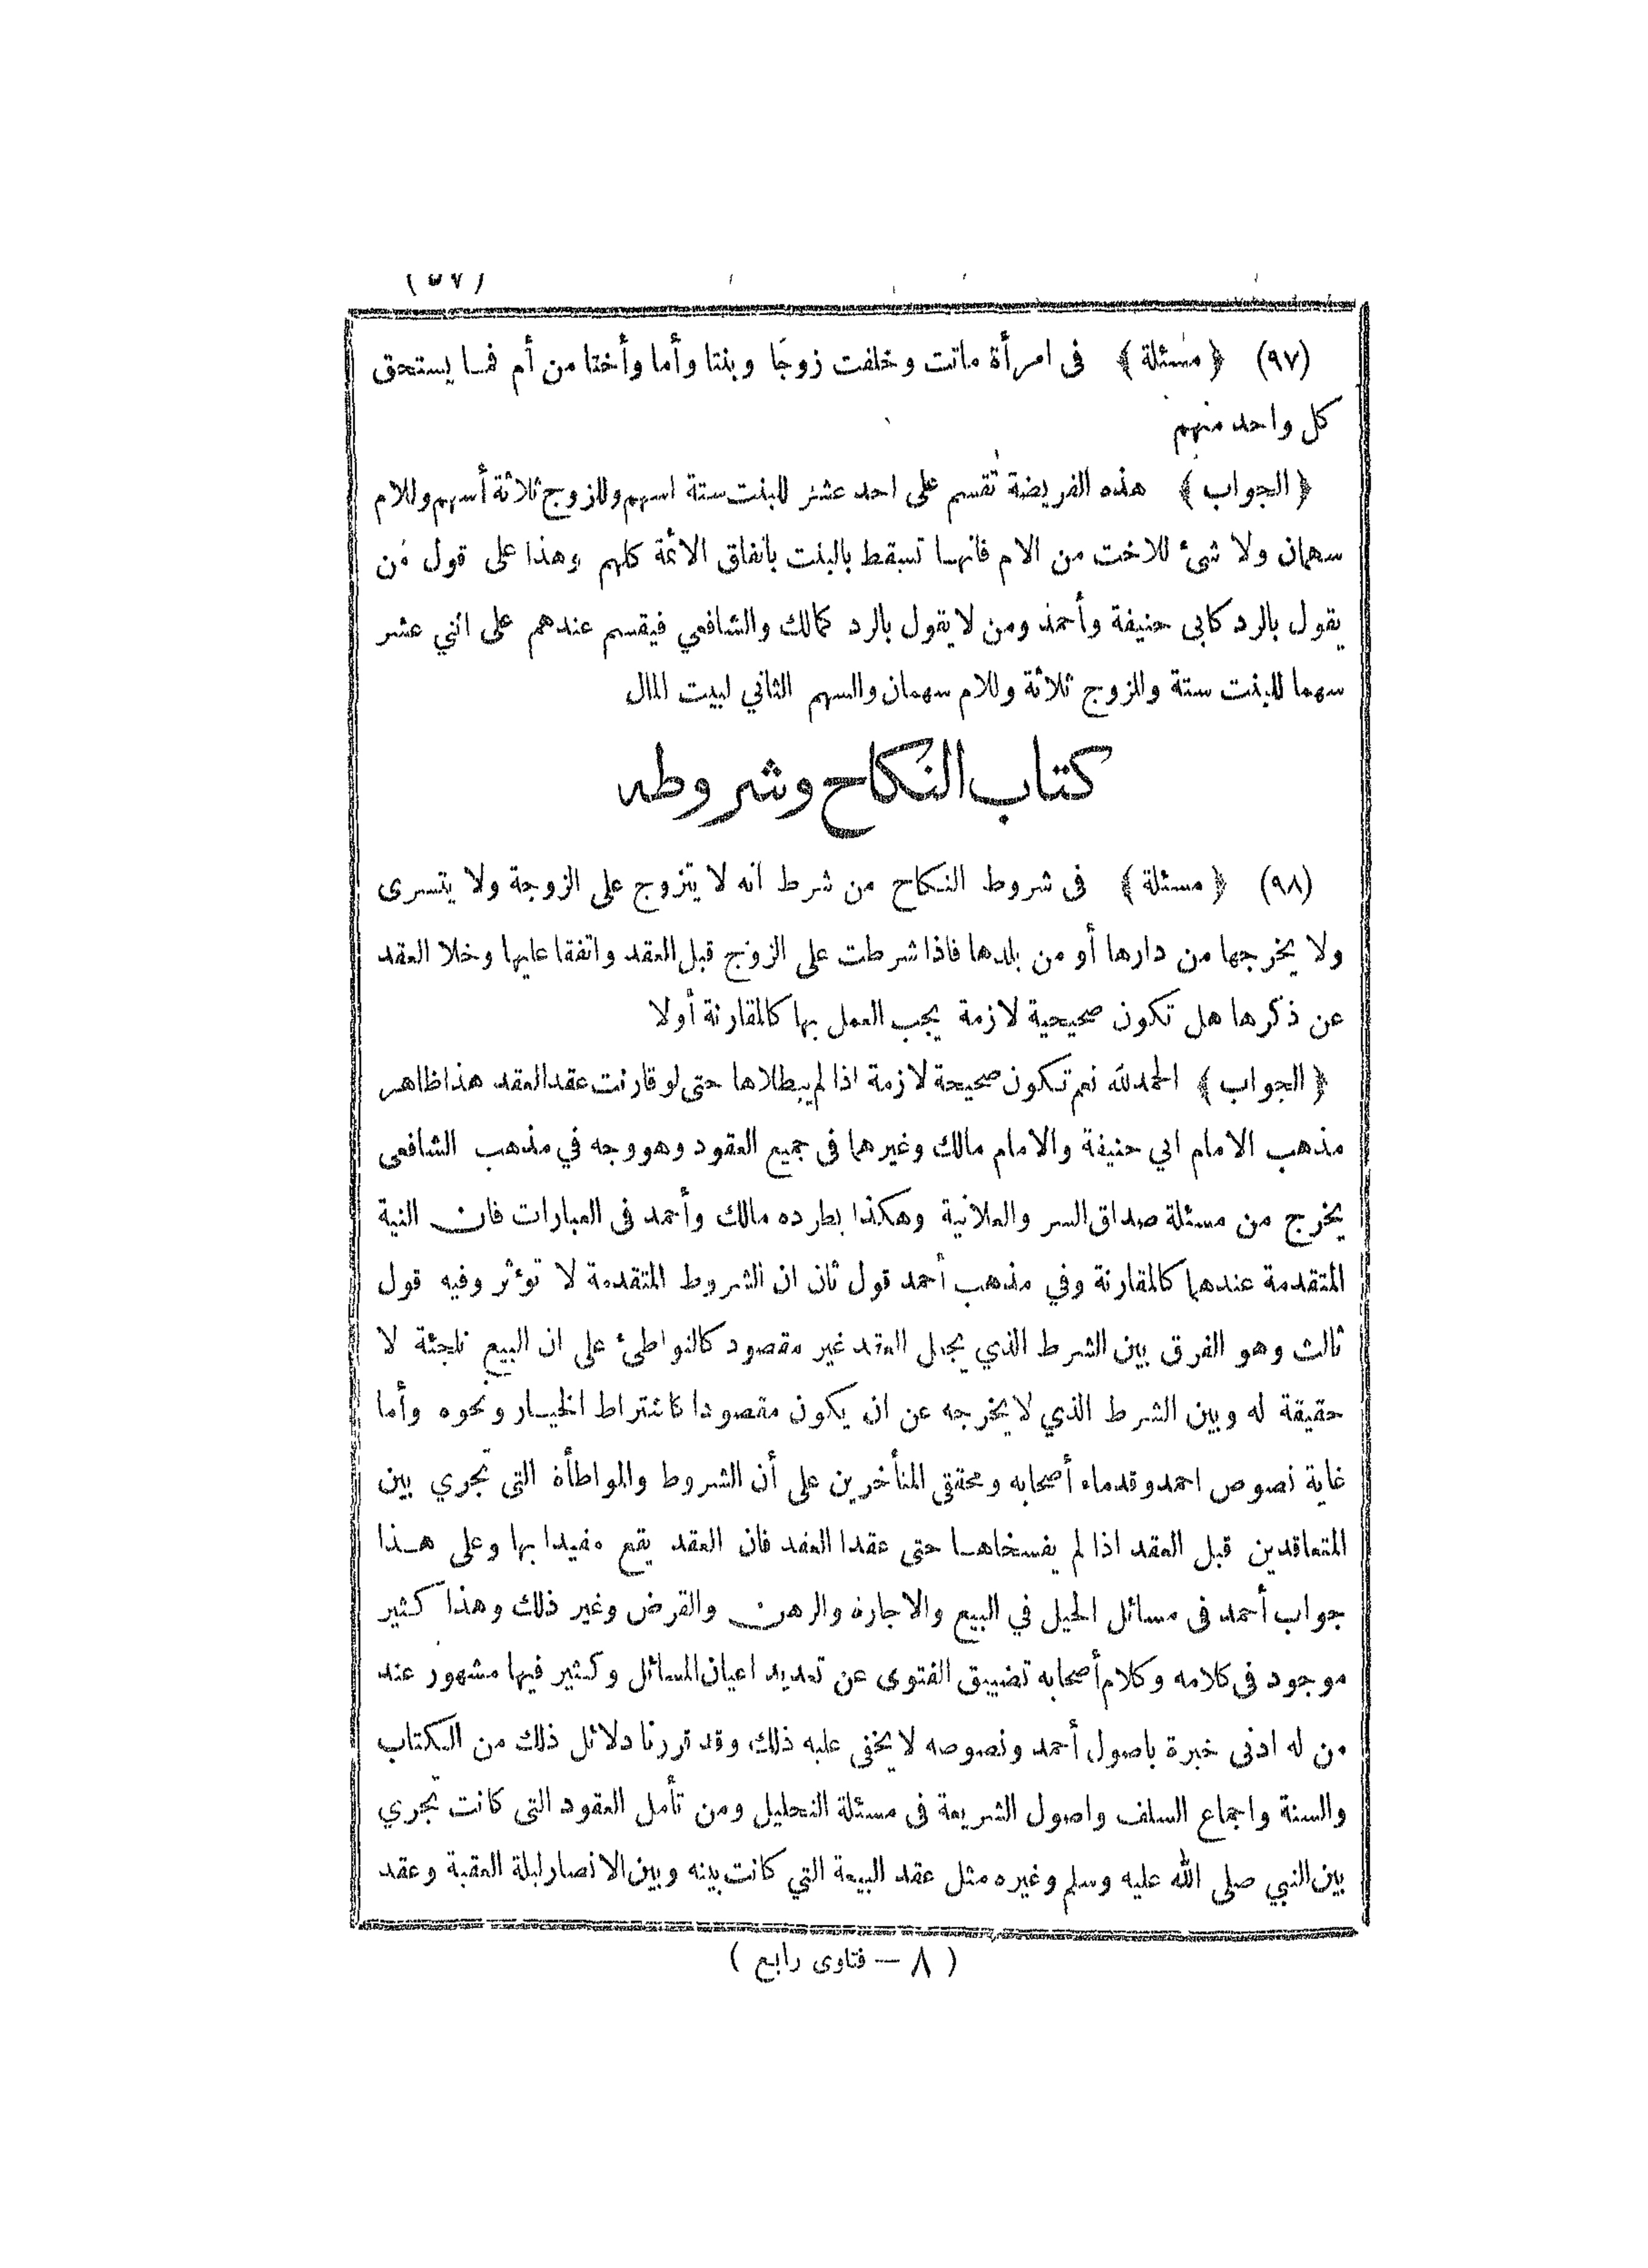 (٥٧)
(٩٧) ﴿ مسئلة ﴾ فى امرأة ماتت وخلفت زوجا وبنتا وأما وأختا من أم فما يستحق
كل واحد منهم
﴿ الجواب ﴾ هذه الفريضة تقسم على احد عشر للبنت ستة اسهم وللزوج ثلاثة أسهم وللام
سهمان ولا شئ للاخت من الام فانها تسقط بالبنت باتفاق الائمة كلهم وهذا على قول من
يقول بالرد كابى حنيفة وأحمد ومن لا يقول بالرد كمالك والشافعي فيقسم عندهم على اثني عشر
سهما للبنت ستة وللزوج ثلاثة وللام سهمان والسهم الثاني لبيت المال
كتاب النكاح وشروطه
(٩٨) ﴿ مسئلة ﴾ فى شروط النكاح من شرط انه لا يتزوج على الزوجة ولا يتسرى
ولا يخرجها من دارها أو من بلدها فاذا شرطت على الزوج قبل العقد واتفقا عليها وخلا العقد
عن ذكرها هل تكون صحيحية لازمة يجب العمل بها كالمقارنة أولا
﴿ الجواب ﴾ الحمد لله نعم تكون صحيحة لازمة اذا لم يبطلاها حتى لو قارنت عقد العقد هذا ظاهر
مذهب الامام ابي حنيفة والامام مالك وغيرهما فى جميع العقود وهو وجه في مذهب الشافعى
يخرج من مسئلة صداق السر والعلانية وهكذا يطرده مالك وأحمد فى العبارات فان النية
المتقدمة عندهما كالمقارنة وفي مذهب أحمد قول ثان ان الشروط المتقدمة لا تؤثر وفيه قول
ثالث وهو الفرق بين الشرط الذي يجعل العقد غير مقصود كالتواطئ على ان البيع تلجئة لا
حقيقة له وبين الشرط الذي لا يخرجه عن ان يكون مقصودا كاشتراط الخيار ونحوه وأما
غاية نصوص احمد وقدماء أصحابه ومحققي المتأخرين على أن الشروط والمواطأة التى تجري بين
المتعاقدين قبل العقد اذا لم يفسخاها حتى عقدا العقد فان العقد يقع مقيدا بها وعلى هذا
جواب أحمد فى مسائل الحيل في البيع والاجارة والرهن والقرض وغير ذلك وهذا كثير
موجود فى كلامه وكلام أصحابه تضييق الفتوى عن تعديد اعيان المسائل وكثير فيها مشهور عند
من له ادنى خبرة باصول أحمد ونصوصه لا يخفى عليه ذلك وقد قررنا دلائل ذلك من الكتاب
والسنة واجماع السلف واصول الشريعة فى مسئلة التحليل ومن تأمل العقود التى كانت تجري
بين النبي صلى الله عليه وسلم وغيره مثل عقد البيعة التي كانت بينه وبين الانصار ليلة العقبة وعقد
( ٨ — فتاوى رابع )